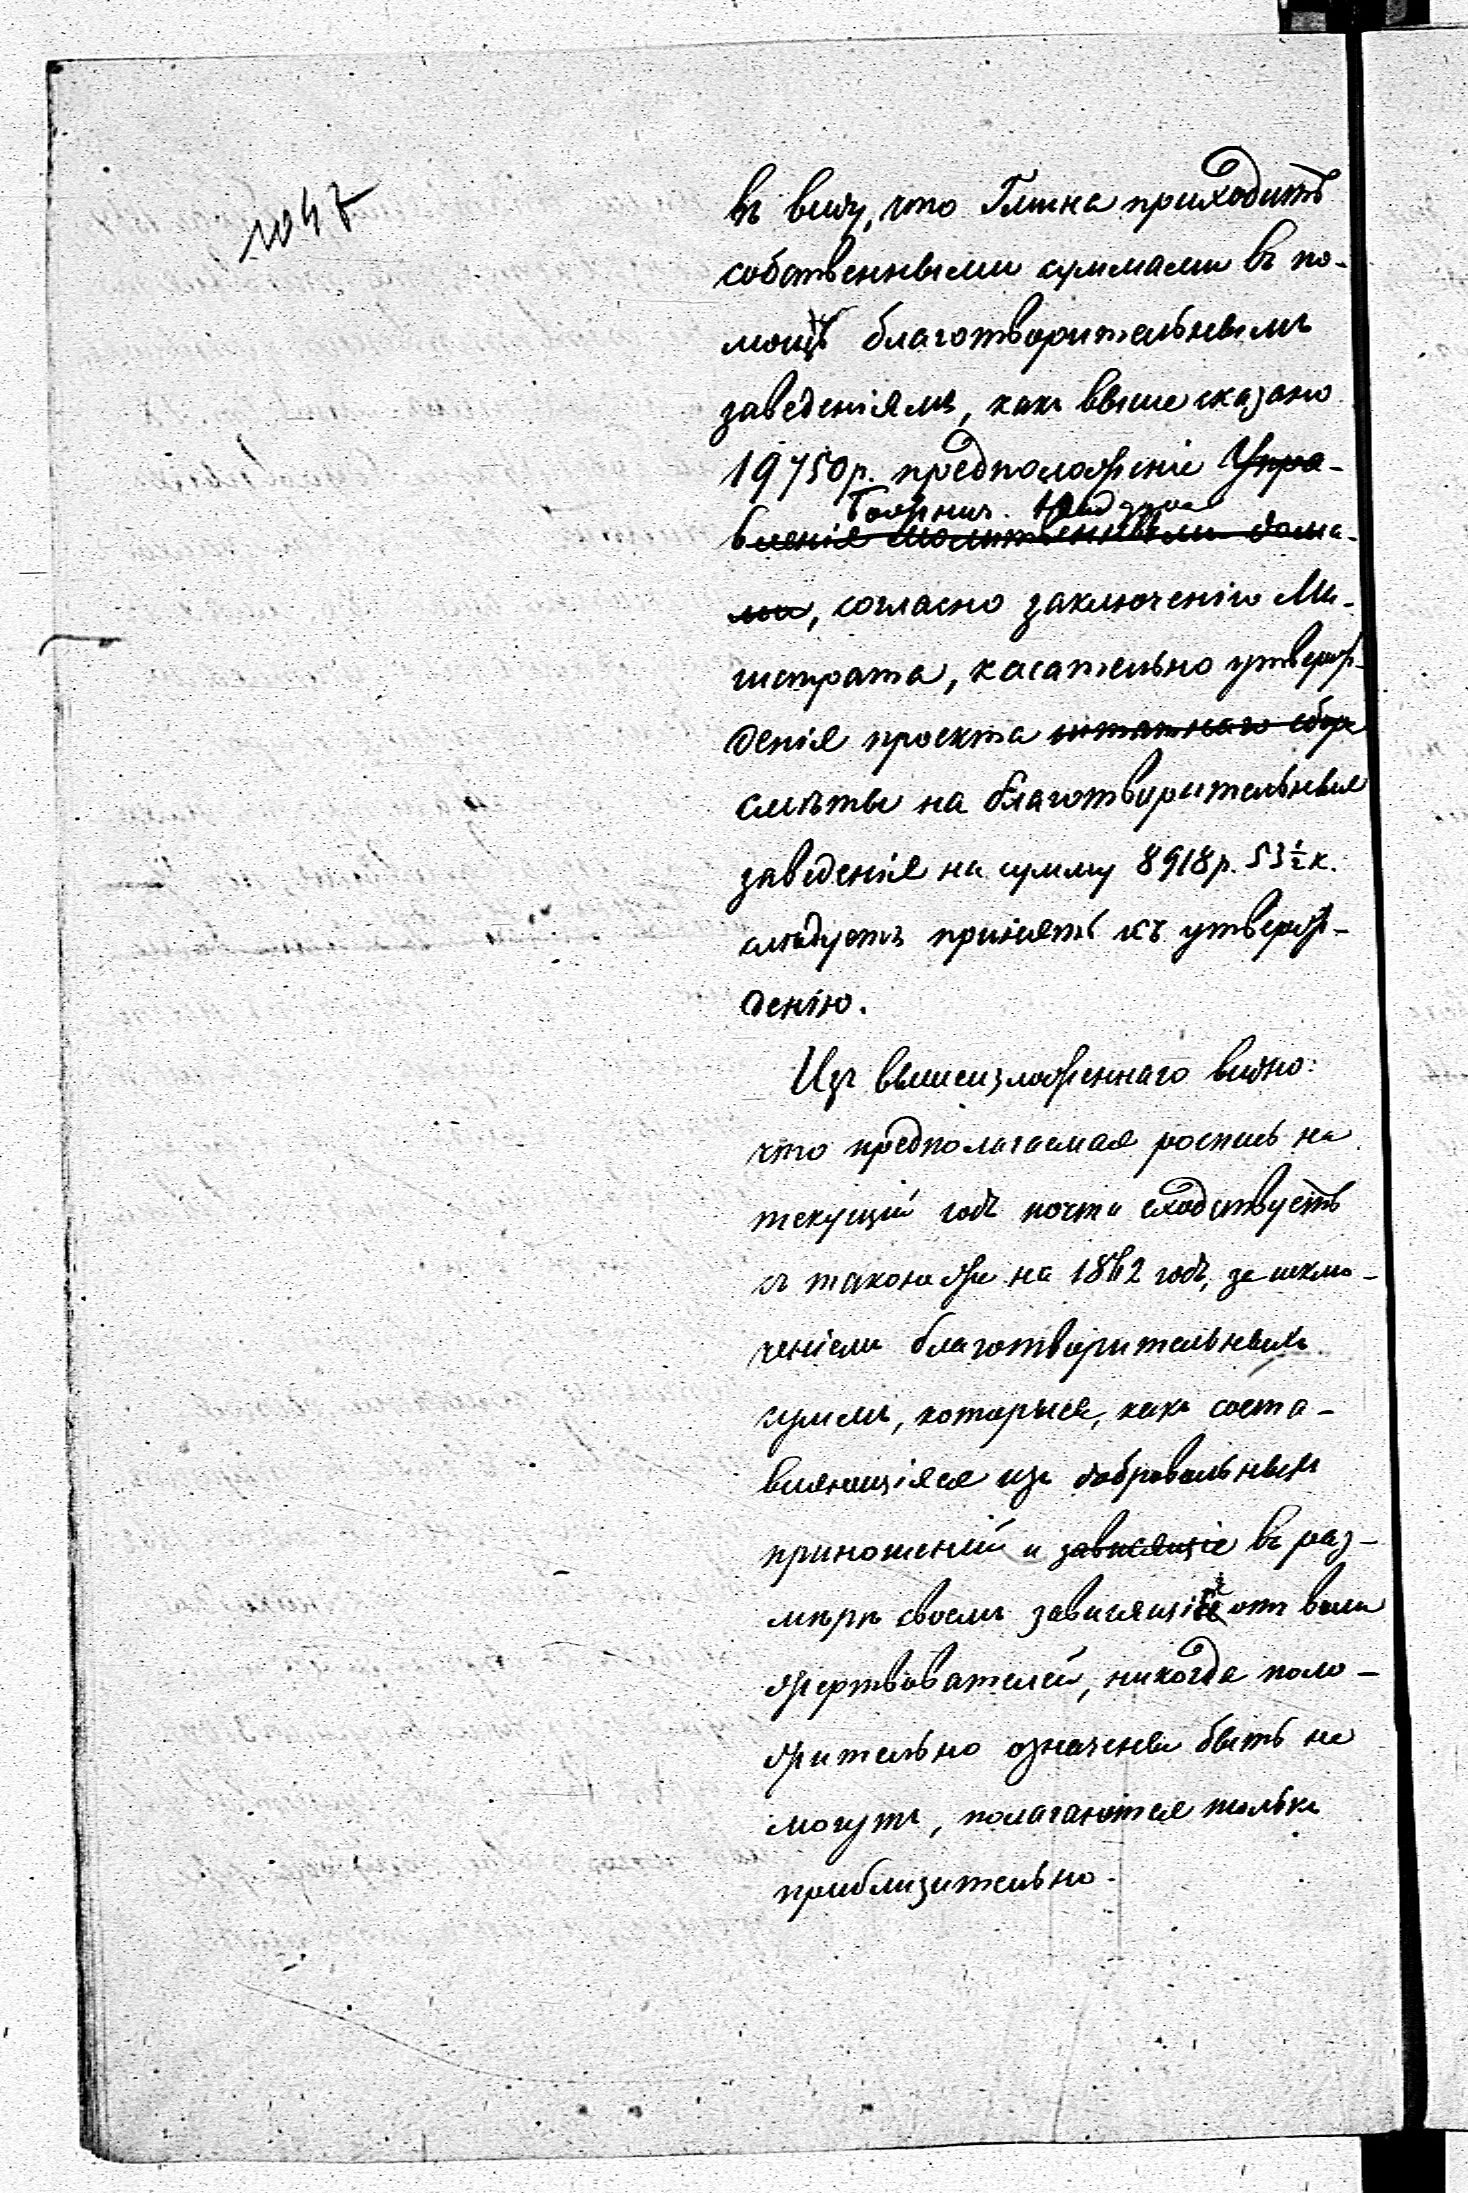 1047
въ виду, что Гмина приходитъ
собственными суммами въ по-
мощь благотворительнымъ
заведеніямъ, какъ выше сказано
19750 р. предположеніе Упра-
Божнич. Надзора
вленія Молитвенными дома-
ми, согласно заключенію Ма-
гистрата, касательно утверж-
денія проекта штатнаго сбора
смѣты на благотворительныя
заведенія на сумму 8918 р. 53 ½ к.
слѣдуетъ принять къ утверж-
денію.
Изъ вышеизложеннаго видно:
что предполагаемая роспись на
текущій годъ почти сходствуетъ
съ таковою же на 1862 годъ, за исклю-
ченіемъ благотворительныхъ
суммъ, которыя, какъ соста-
вляющіяся изъ добровольныхъ
приношеній и зависящіе въ раз-
мѣрѣ своемъ зависящіе отъ воли
жертвователей, никогда поло-
жительно означены быть не
могутъ, полагаются только
приблизительно.